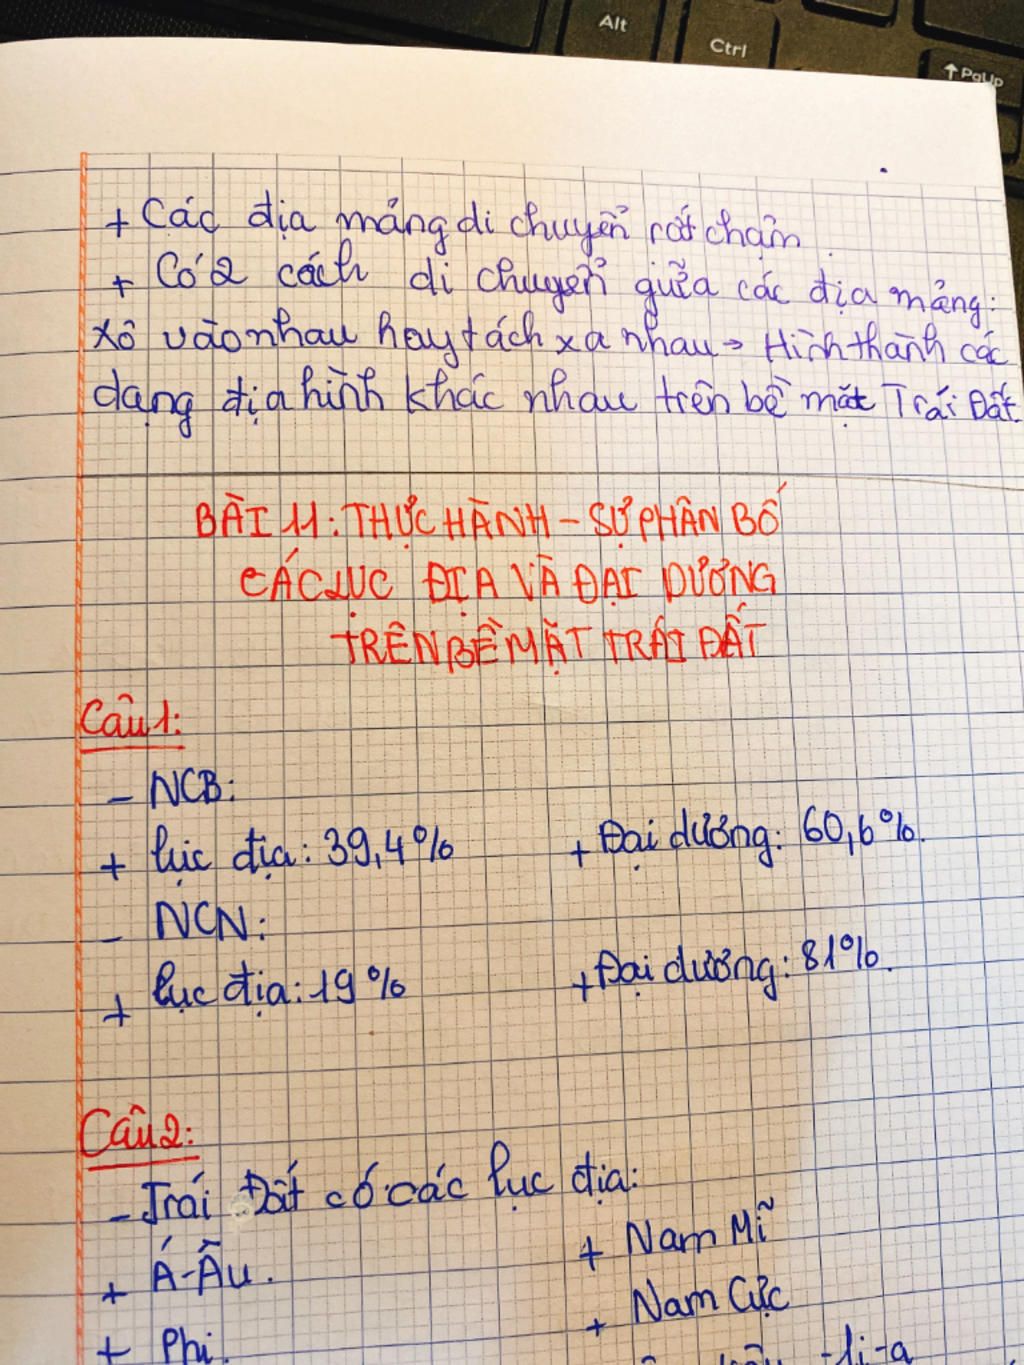 Alt
Ctrl
↑ PgUp
+ Các địa mảng di chuyển rất chậm
+ Có 2 cách di chuyển giữa các địa mảng:
xô vào nhau hay tách xa nhau → Hình thành các
dạng địa hình khác nhau trên bề mặt Trái Đất.
BÀI 11: THỰC HÀNH - SỰ PHÂN BỐ
CÁC LỤC ĐỊA VÀ ĐẠI DƯƠNG
TRÊN BỀ MẶT TRÁI ĐẤT
Câu 1:
- NCB:
+ lục địa: 39,4% + Đại dương: 60,6%.
- NCN:
+ lục địa: 19% + Đại dương: 81%.
Câu 2:
- Trái Đất có các lục địa:
+ Á-Âu. + Nam Mĩ
+ Phi. + Nam Cực
-li-a